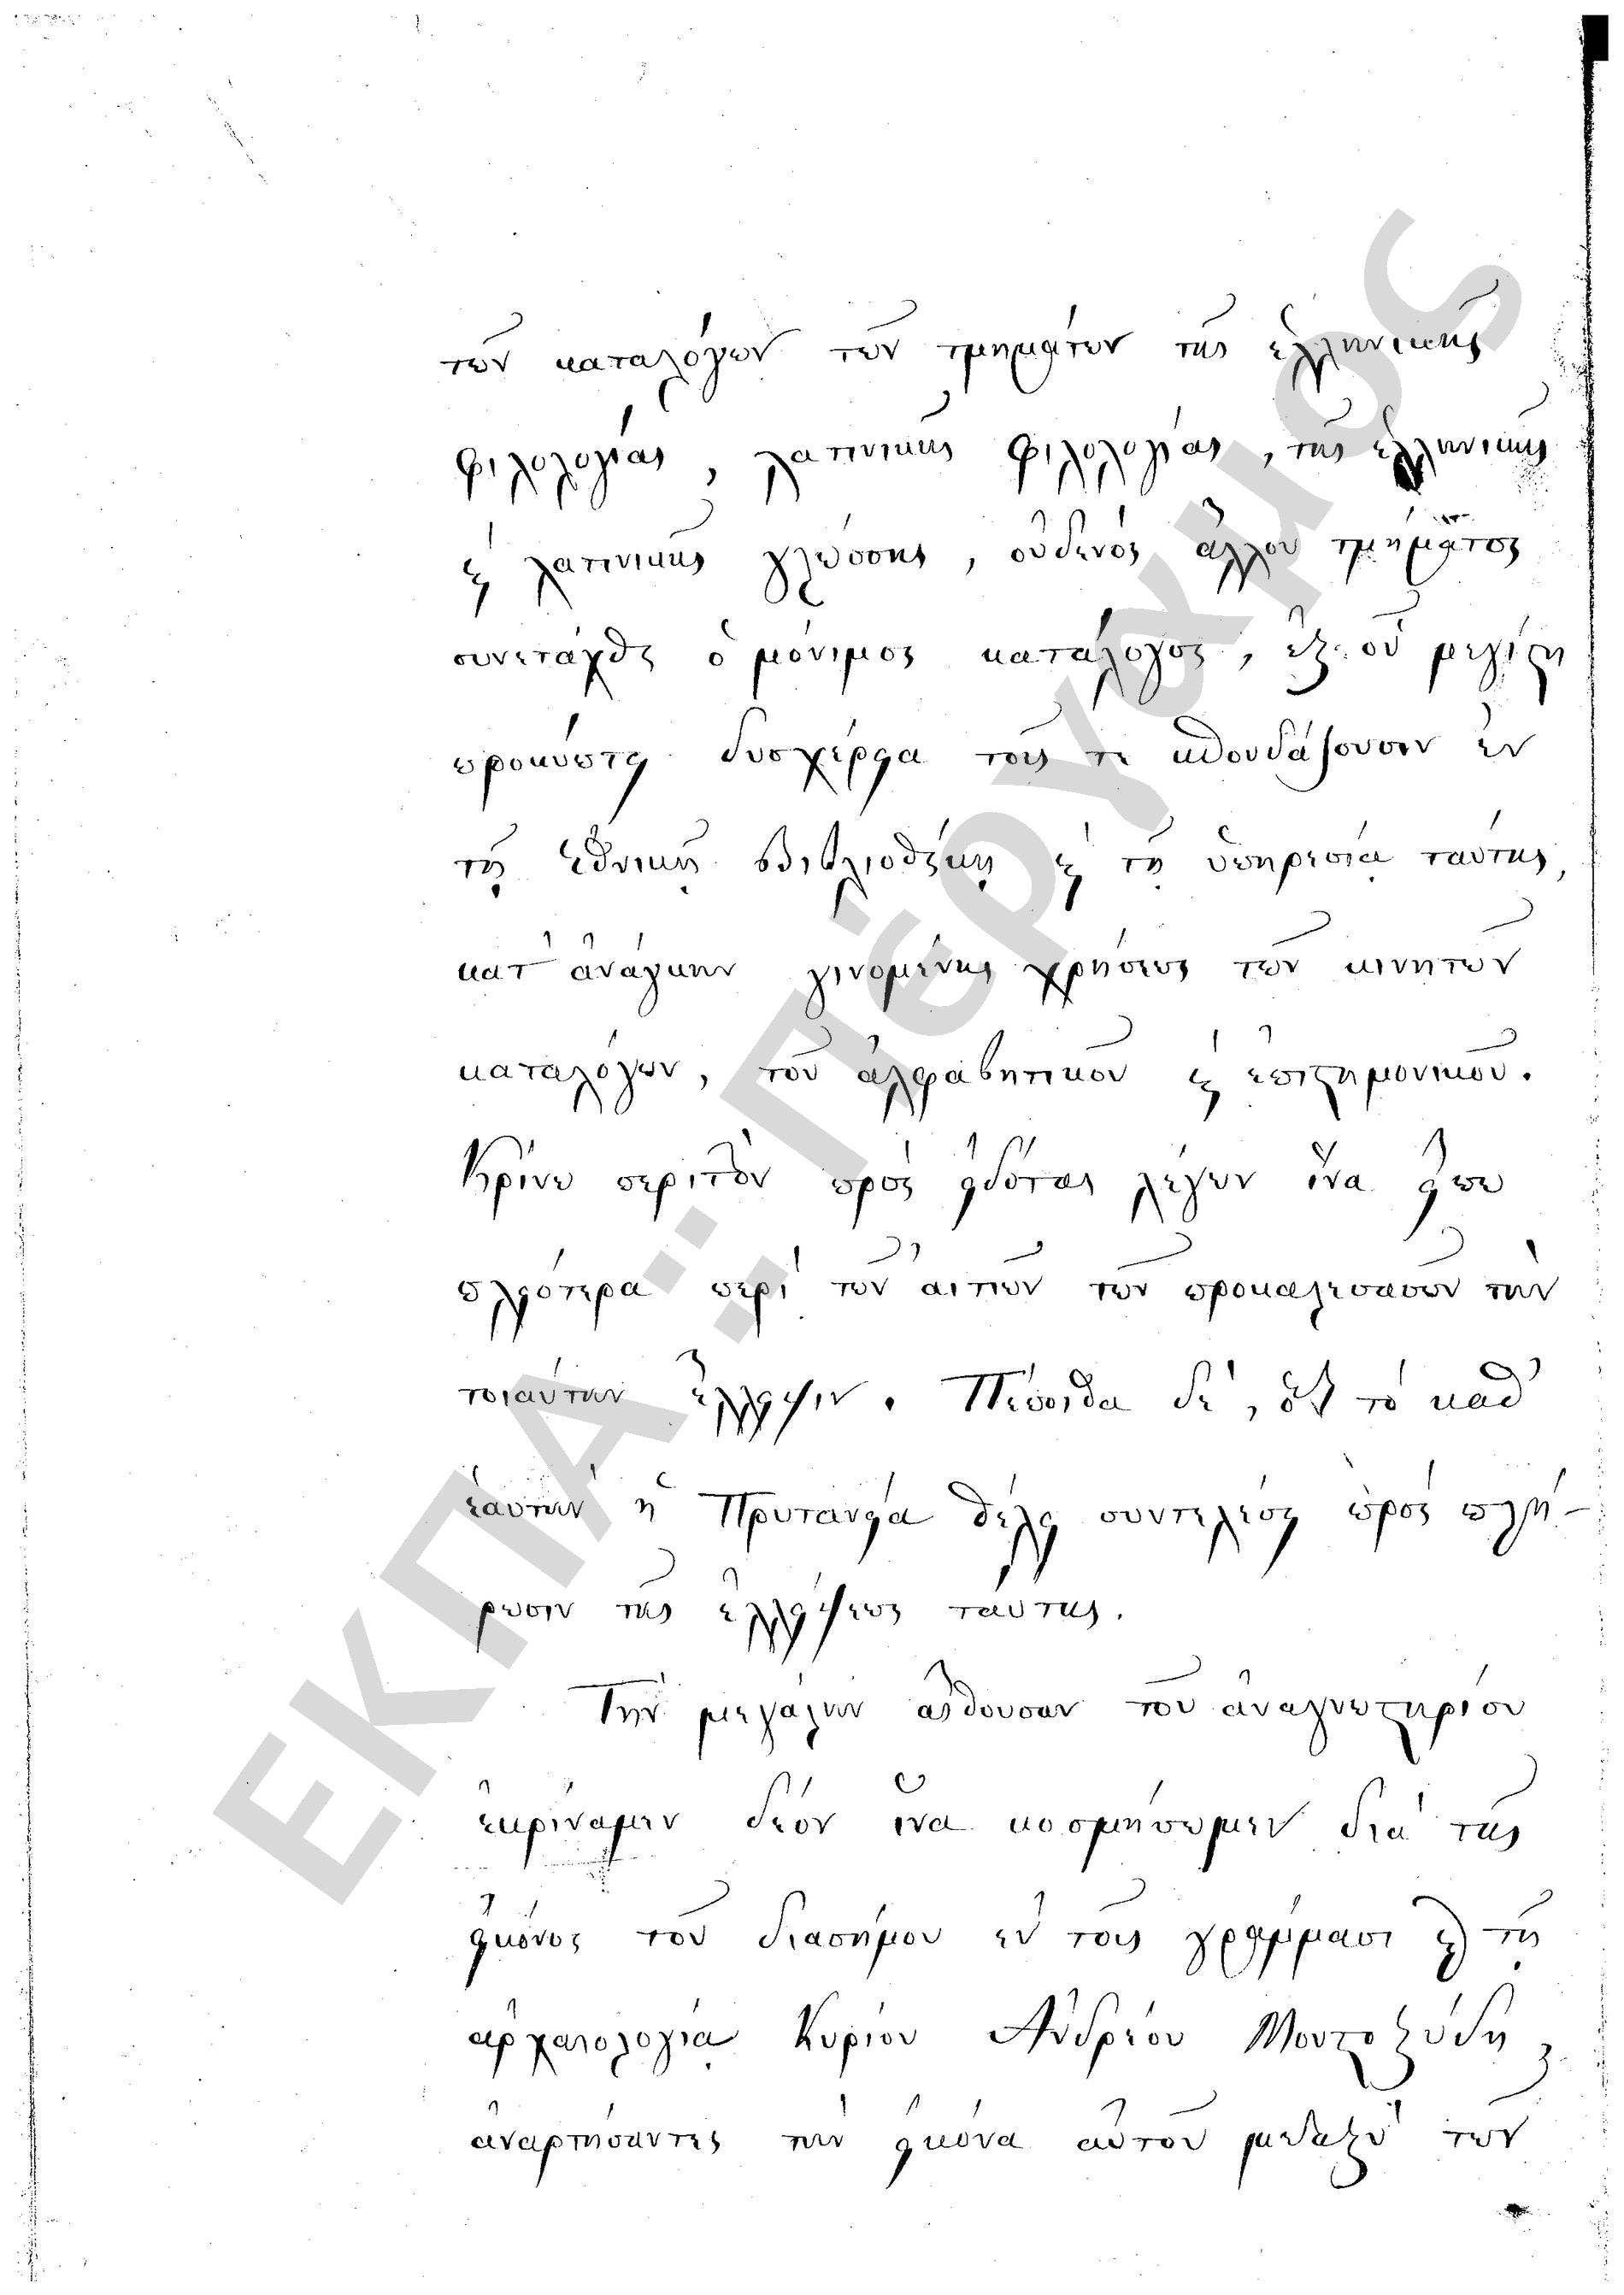 τῶν καταλόγων τῶν τμημάτων τῆς ἑλληνικῆς
φιλολογίας, λατινικῆς φιλολογίας, τῆς ἑλληνικῆς
ϗ λατινικῆς γλώσσης, οὐδενὸς ἄλλου τμήματος
συνετάχθη ὁ μόνιμος κατάλογος, ἐξ οὗ μεγίϛη
προκύπτει δυσχέρεια τοῖς τε σπουδάζουσιν ἐν
τῇ Ἐθνικῇ Βιβλιοθήκῃ ϗ τῇ ὑπηρεσίᾳ ταύτης,
κατ' ἀνάγκην γινομένης χρήσεως τῶν κινητῶν
καταλόγων, τοῦ ἀλφαβητικοῦ ϗ ἐπιϛημονικοῦ.
Κρίνω περιττὸν πρὸς εἰδότας λέγων ἵνα εἴπω
πλειότερα περὶ τῶν αἰτιῶν τῶν προκαλεσασῶν τὴν
τοιαύτην ἔλλειψιν. Πέποιθα δέ, ὅτι τὸ καθ'
ἑαυτὴν ἡ Πρυτανεία θέλει συντελέσῃ πρὸς πλή-
ρωσιν τῆς ἐλλείψεως ταύτης.
Τὴν μεγάλην αἴθουσαν τοῦ ἀναγνωϛηρίου
ἐκρίναμεν δέον ἵνα κοσμήσωμεν διὰ τῆς
εἰκόνος τοῦ διασήμου ἐν τοῖς γράμμασι ϗ τῇ
ἀρχαιολογίᾳ Κυρίου Ἀνδρέου Μουϛοξύδη
ἀναρτήσαντες τὴν εἰκόνα αὐτοῦ μεταξὺ τῶν
ΕΚΠΑ - Πέργαμος